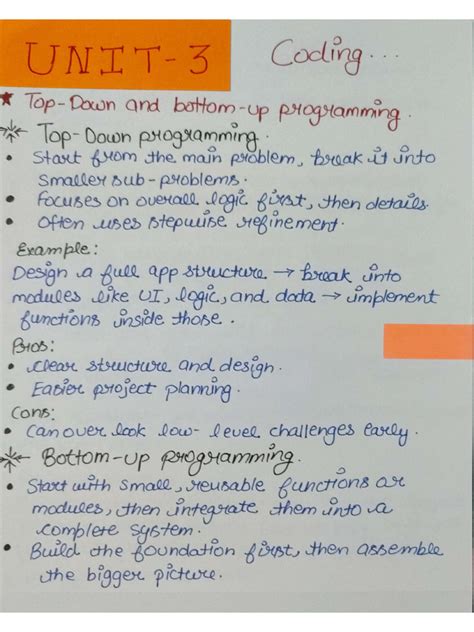 UNIT-3 Coding...
★ Top-Down and bottom-up programming.
Top-Down programming.
• Start from the main problem, break it into
smaller sub-problems.
• Focuses on overall logic first, then details.
• Often uses stepwise refinement.
Example:
Design a full app structure → break into
modules like UI, logic, and data → implement
functions inside those.
Pros:
• clear structure and design.
• Easier project planning.
Cons:
• Can over look low-level challenges early.
Bottom-up programming.
• Start with small, reusable functions or
modules, then integrate them into a
complete system.
• Build the foundation first, then assemble
the bigger picture.